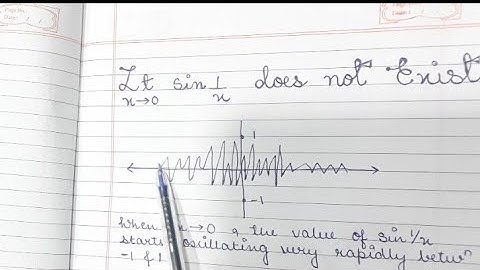 Lt sin 1/x does not Exist
x→0
1
-1
When x→0, the value of sin 1/x
starts oscillating very rapidly betwn
-1 & 1